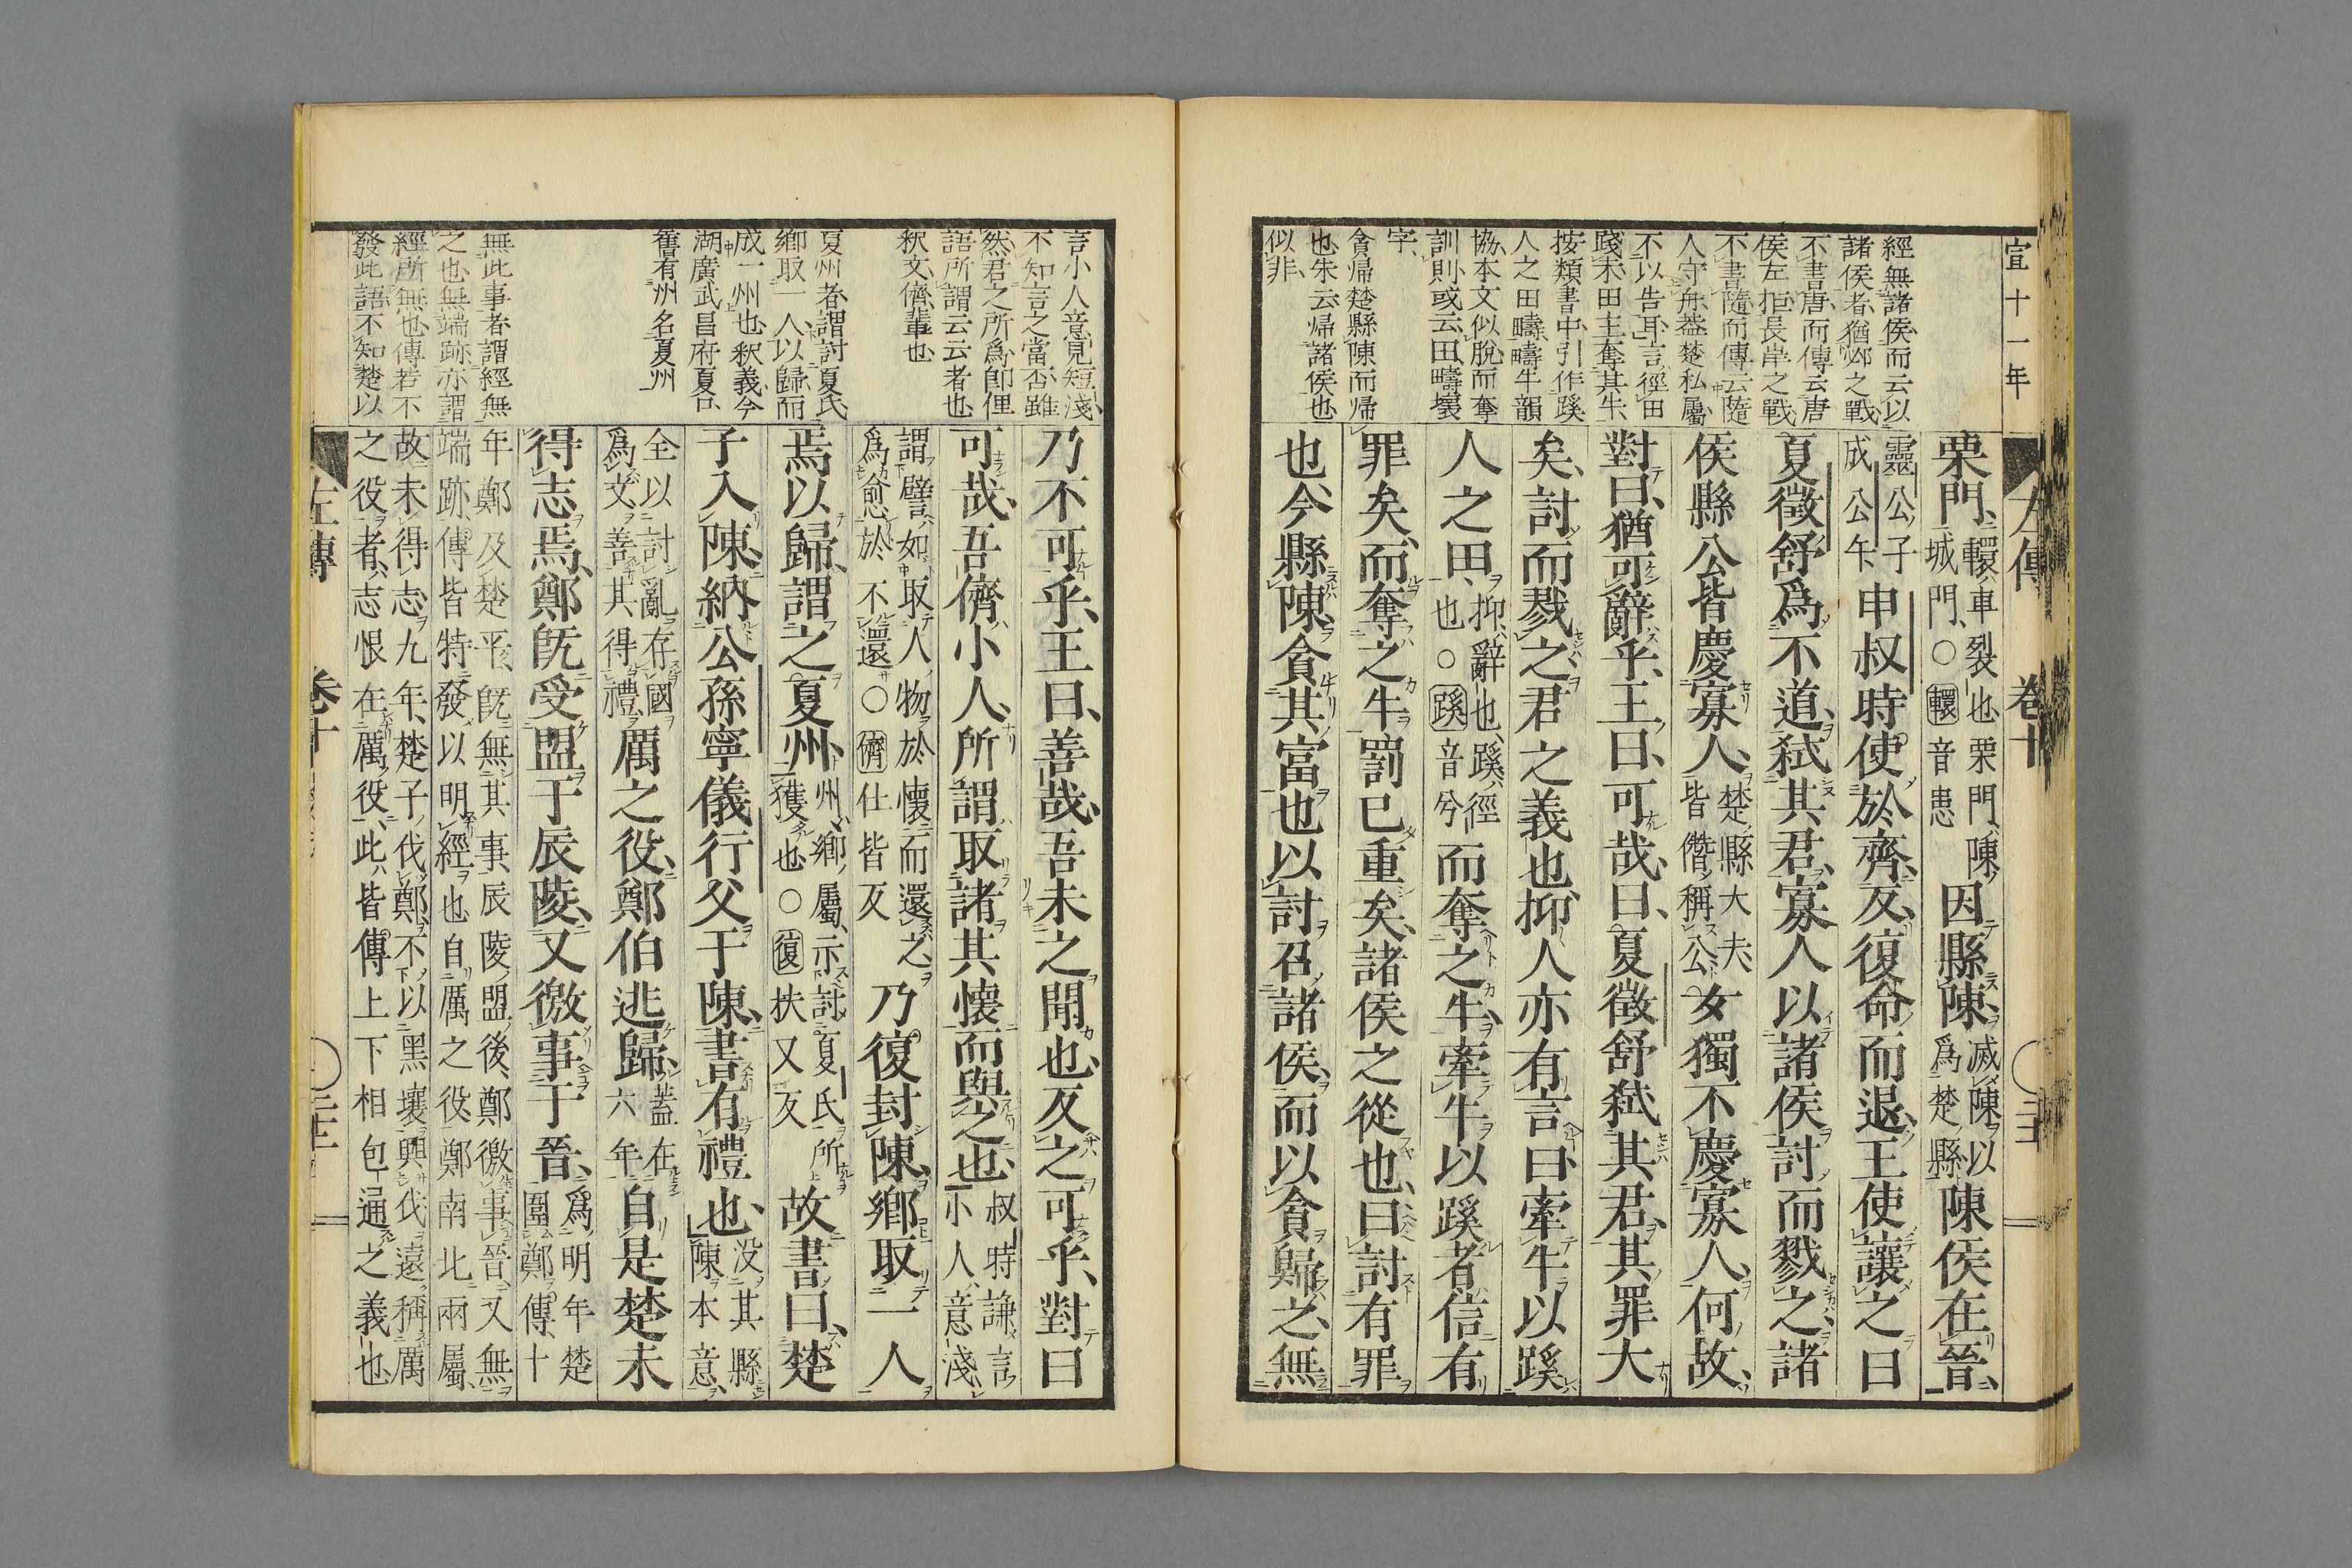 宣十一年
左傳　卷十　〇三十二
經無諸侯而云以
諸侯者猶邲之戰
不書唐而傳云唐
侯左拒長岸之戰
不書隨而傳云隨
人守舟蓋楚私屬
不以告耳言徑田
踐未田主奪其牛
按類書中引作蹊
人之田疇疇牛韻
協本文似脫而奪
訓則或云田疇壞
字
貪歸楚縣陳而歸
也朱云歸諸侯也
似非
栗門、轘車裂也栗門、陳
城門、〇轘音患因縣陳、滅陳以
爲楚縣陳侯在晉、
靈公子
成公午、申叔時使於齊、反、復命而退、王使讓之曰
夏徵舒爲不道、弒其君、寡人以諸侯討而戮之、諸
侯縣公皆慶寡人、楚縣大夫
皆僭稱公女獨不慶寡人、何故、
對曰、猶可辭乎、王曰、可哉、曰、夏徵舒弒其君、其罪大
矣、討而戮之、君之義也、抑人亦有言曰、牽牛以蹊
人之田、抑、辭也、蹊、徑
也〇蹊音兮而奪之牛、牽牛以蹊者、信有
罪矣、而奪之牛、罰已重矣、諸侯之從也、曰、討有罪
也、今縣陳、貪其富也、以討召諸侯、而以貪歸之、無
言小人意見短淺
不知言之當否雖
然君之所爲卽俚
語所謂云云者也
釈文儕輩也
夏州者謂討夏氏
鄉取一人以歸而
成一州也釈義今
湖廣武昌府夏口
舊有州名夏州
無此事者謂經無
之也無端跡亦謂
經所無也傳若不
發此語不知楚以
乃不可乎、王曰、善哉、吾未之聞也、反之、可乎、對曰
可哉、吾儕小人、所謂取諸其懷而與之也、叔時謙言
小人意淺
謂譬如取人物於懷而還之、
爲愈於不還〇儕仕皆反乃復封陳、鄉取一人
焉以歸、謂之夏州、州、鄉屬、示討夏氏所
獲也〇復扶又反故書曰、楚
子入陳、納公孫寧儀行父于陳、書有禮也、沒其縣
陳本意、
全以討亂存國
爲文善其得禮厲之役、鄭伯逃歸、蓋在
六年自是楚未
得志焉、鄭旣受盟于辰陵、又徼事于晉、爲明年楚
圍鄭傳、十
年鄭及楚平、旣無其事、辰陵盟後、鄭徼事晉、又無
端跡、傳皆特發以明經也自厲之役、鄭南北兩屬、
故未得志、九年、楚子伐鄭、不以黑壤興伐、遠稱厲
之役者、志恨在厲役、此皆傳上下相包通之義也、
左傳　卷十